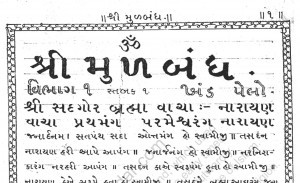 ॥ શ્રી મુળબંધ ॥
॥ ૧ ॥
ૐ
શ્રી મુળબંધ
વિભાગ ૧ સ્તબક ૧ ખંડ પેલો
શ્રી સદગોર બ્રહ્મા વાચા :- નારાયણ
વાચા પ્રથમંગ પરમેશ્વરંગ નારાયણ
જનાર્દનમ સતપંથ સદા ઓતમંગ હો સ્વામીજી ॥ તસદંન
નારાયણ હરી આપે આપંગ ॥ જનાર્જનમંગ હો સ્વામીજી ॥ નરનિસા-
કારંગ નરહરી આપંગ ॥ તસદંન કાએ સ્વરૂપંગ ઇતા હો સ્વામીજી ॥